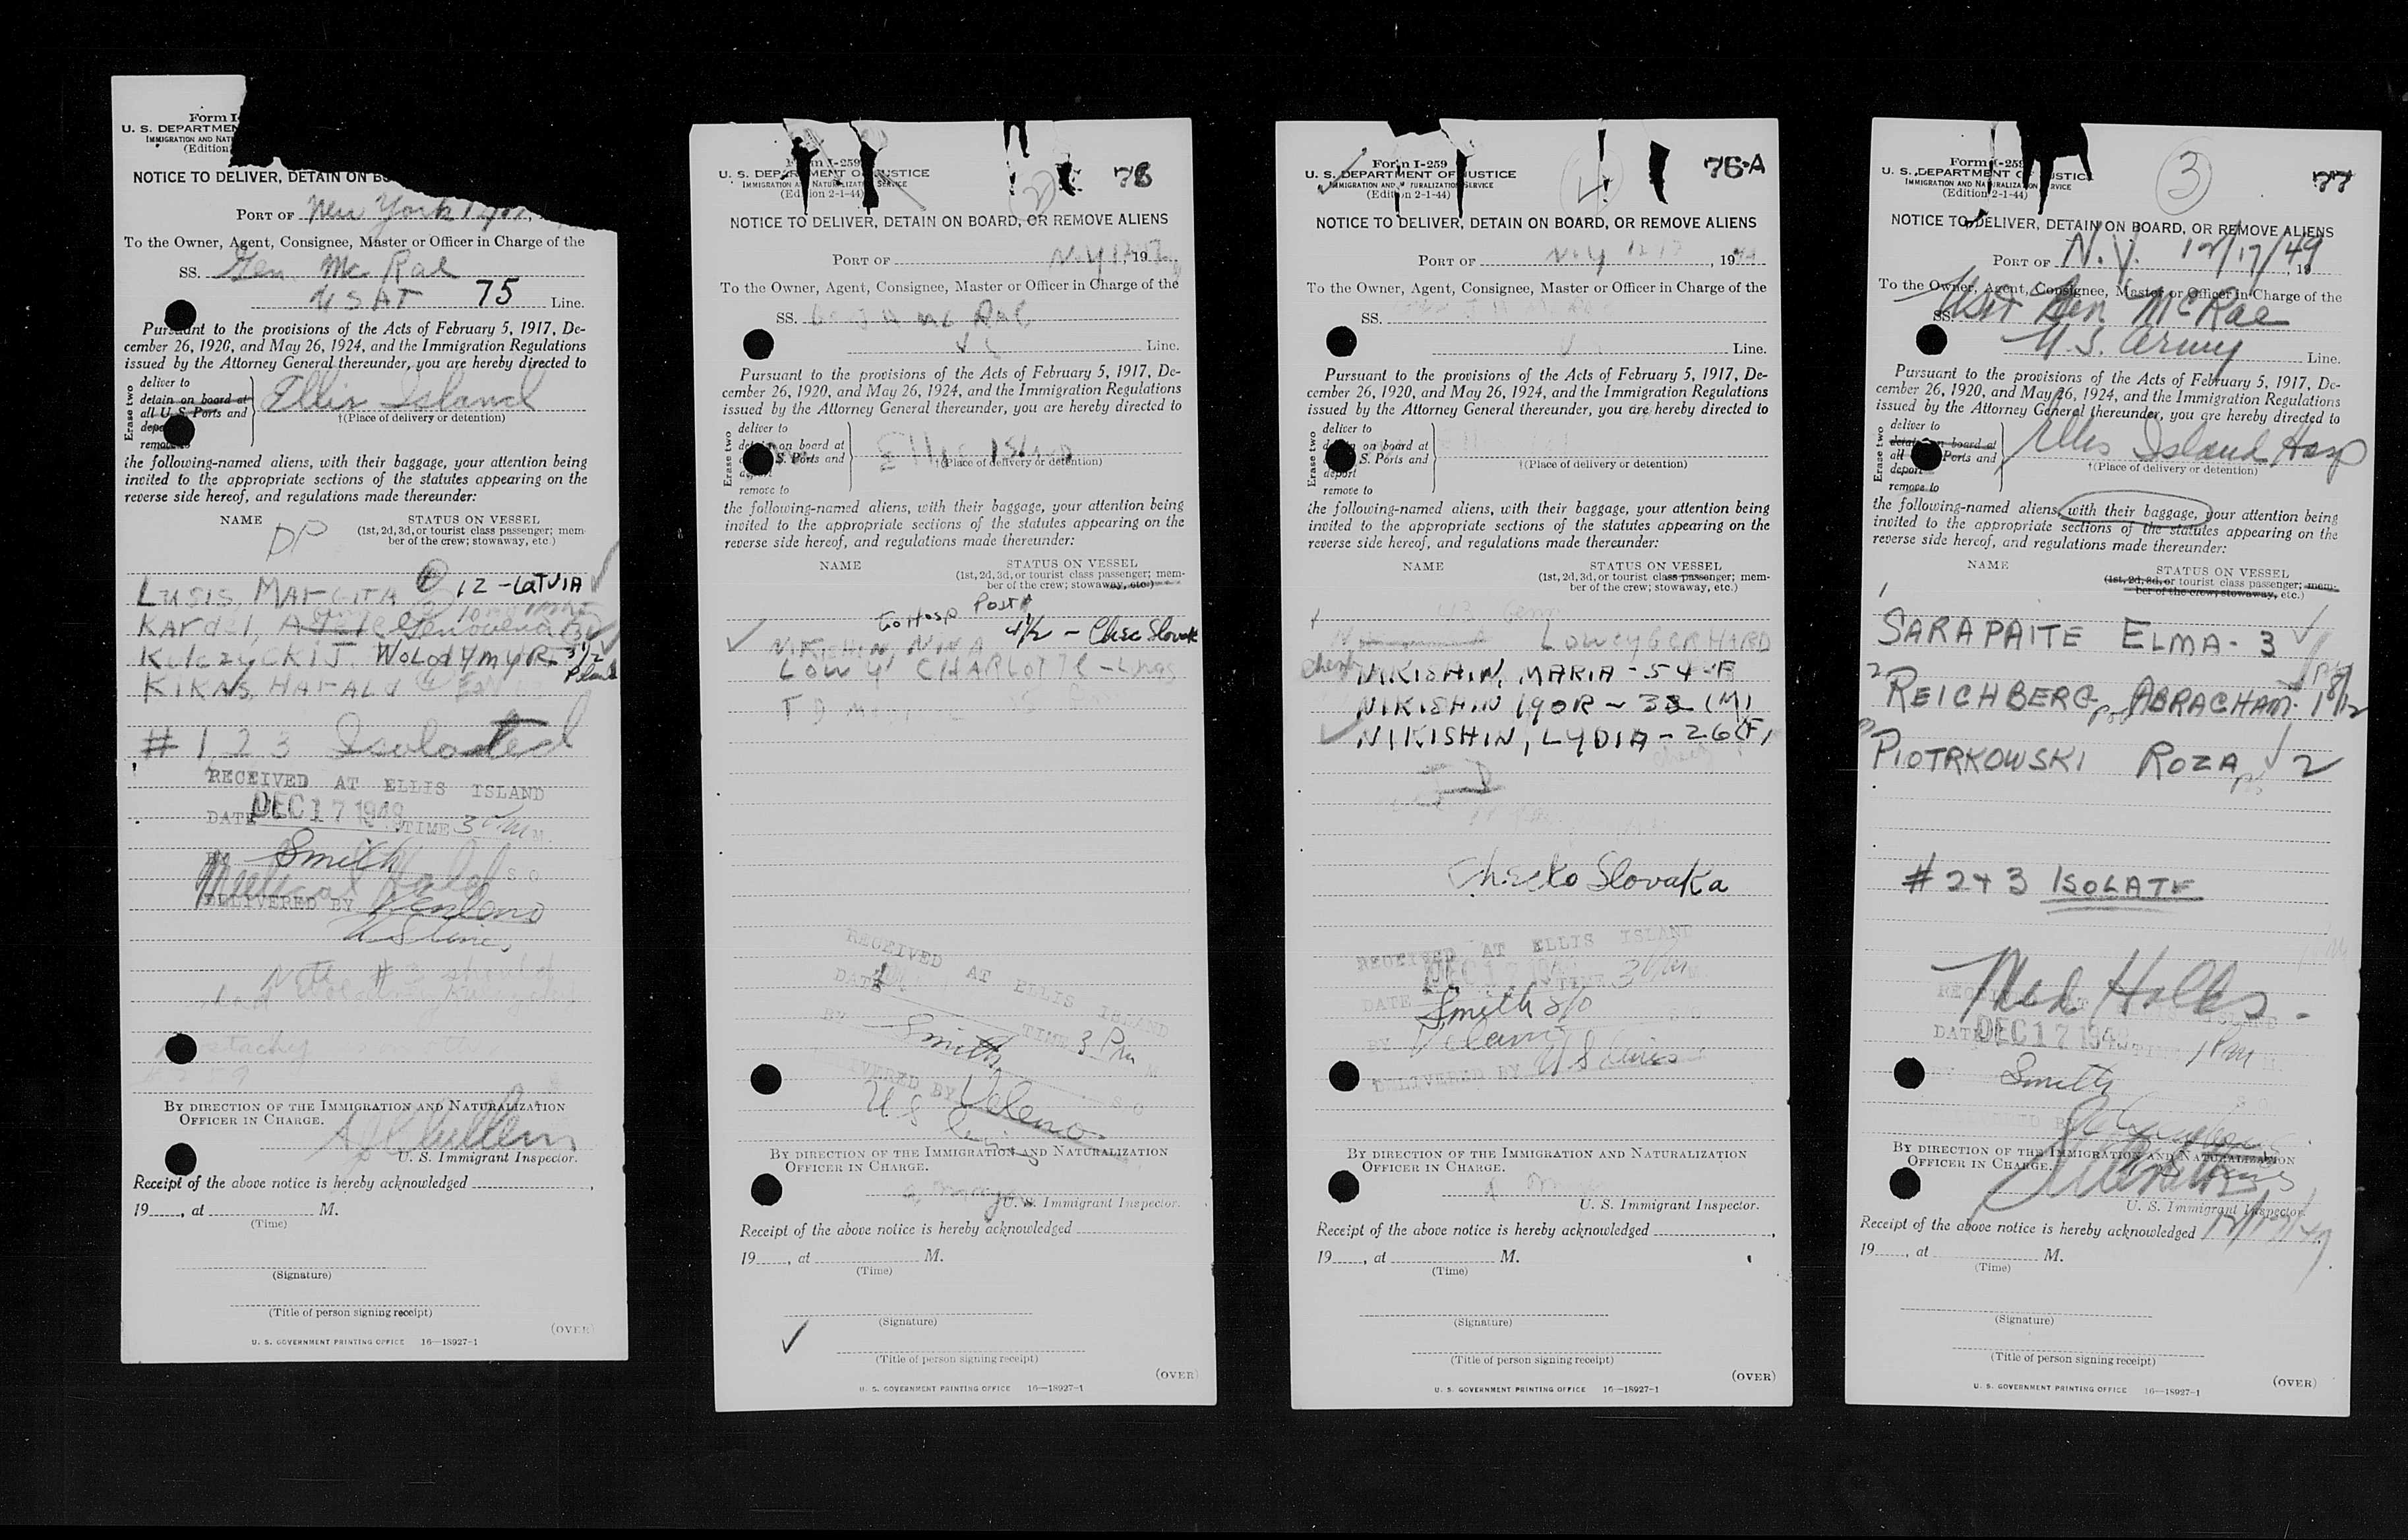 Form I-
U. S. DEPARTMEN
IMMIGRATION AND NAT
(Edition
NOTICE TO DELIVER, DETAIN ON BO
PORT OF New York
To the Owner, Agent, Consignee, Master or Officer in Charge of the
SS. Gen Mc Rae
USAT 75 Line.
Pursuant to the provisions of the Acts of February 5, 1917, De-
cember 26, 1920, and May 26, 1924, and the Immigration Regulations
issued by the Attorney General thereunder, you are hereby directed to
Erase two
deliver to
detain on board at
all U. S. Ports and
remove to
Ellis Island
†(Place of delivery or detention)
the following-named aliens, with their baggage, your attention being
invited to the appropriate sections of the statutes appearing on the
reverse side hereof, and regulations made thereunder:
NAME STATUS ON VESSEL
DP (1st, 2d, 3d, or tourist class passenger; mem-
ber of the crew; stowaway, etc.)
LUSIS, MARGITA 12 - LATVIA
Kardel, Genovena
KULCZYCKIJ WOLODYMYR
KIKAS, HARALD
# 1, 2 3 Isolated
RECEIVED AT ELLIS ISLAND
DATE DEC 17 1949 TIME 3 PM M.
BY Smith S O
Medical Hold
DELIVERED BY
US Lines
Note # 3 should
BY DIRECTION OF THE IMMIGRATION AND NATURALIZATION
OFFICER IN CHARGE.
U. S. Immigrant Inspector.
Receipt of the above notice is hereby acknowledged
19, at M.
(Time)
(Signature)
(Title of person signing receipt)
(OVER)
U. S. GOVERNMENT PRINTING OFFICE 16—18927-1
Form I-259 76
U. S. DEPARTMENT OF JUSTICE
IMMIGRATION AND NATURALIZATION SERVICE
(Edition 2-1-44)
NOTICE TO DELIVER, DETAIN ON BOARD, OR REMOVE ALIENS
PORT OF N.Y. , 19
To the Owner, Agent, Consignee, Master or Officer in Charge of the
SS. Mc Rae
US Line.
Pursuant to the provisions of the Acts of February 5, 1917, De-
cember 26, 1920, and May 26, 1924, and the Immigration Regulations
issued by the Attorney General thereunder, you are hereby directed to
Erase two
deliver to
detain on board at
S. Ports and
deport
remove to
Ellis Island
(Place of delivery or detention)
the following-named aliens, with their baggage, your attention being
invited to the appropriate sections of the statutes appearing on the
reverse side hereof, and regulations made thereunder:
NAME STATUS ON VESSEL
(1st, 2d, 3d, or tourist class passenger; mem-
ber of the crew; stowaway, etc.)
to Hosp
NIKISHIN, NINA 4½ - Chec Slovak
LOWY CHARLOTTE - Lungs
RECEIVED AT ELLIS ISLAND
DATE TIME 3 Pm M.
BY Smith S O
DELIVERED BY Veleno
U S Lines
BY DIRECTION OF THE IMMIGRATION AND NATURALIZATION
OFFICER IN CHARGE.
U. S. Immigrant Inspector.
Receipt of the above notice is hereby acknowledged
19, at M.
(Time)
(Signature)
(Title of person signing receipt)
(OVER)
U. S. GOVERNMENT PRINTING OFFICE 16—18927-1
Form I-259 4 76-A
U. S. DEPARTMENT OF JUSTICE
IMMIGRATION AND NATURALIZATION SERVICE
(Edition 2-1-44)
NOTICE TO DELIVER, DETAIN ON BOARD, OR REMOVE ALIENS
PORT OF N.Y 12 17, 1949
To the Owner, Agent, Consignee, Master or Officer in Charge of the
SS.
Line.
Pursuant to the provisions of the Acts of February 5, 1917, De-
cember 26, 1920, and May 26, 1924, and the Immigration Regulations
issued by the Attorney General thereunder, you are hereby directed to
Erase two
deliver to
detain on board at
S. Ports and
deport
remove to
†(Place of delivery or detention)
the following-named aliens, with their baggage, your attention being
invited to the appropriate sections of the statutes appearing on the
reverse side hereof, and regulations made thereunder:
NAME STATUS ON VESSEL
(1st, 2d, 3d, or tourist class passenger; mem-
ber of the crew; stowaway, etc.)
43 Gem
LOWEY GERHARD
NIKISHIN, MARIA - 54 - F
NIKISHIN IGOR - 33 (M)
NIKISHIN, LYDIA - 26 (F)
Checko Slovaka
RECEIVED AT ELLIS ISLAND
DATE DEC 17 1949 TIME 3 PM M.
Smith S/O S O
BY
DELIVERED BY U S Lines
BY DIRECTION OF THE IMMIGRATION AND NATURALIZATION
OFFICER IN CHARGE.
U. S. Immigrant Inspector.
Receipt of the above notice is hereby acknowledged
19, at M.
(Time)
(Signature)
(Title of person signing receipt)
(OVER)
U. S. GOVERNMENT PRINTING OFFICE 16—18927-1
Form I-259 3 77
U. S. DEPARTMENT OF JUSTICE
IMMIGRATION AND NATURALIZATION SERVICE
(Edition 2-1-44)
NOTICE TO DELIVER, DETAIN ON BOARD, OR REMOVE ALIENS
PORT OF N.Y. 12/17/49 19
To the Owner, Agent, Consignee, Master or Officer in Charge of the
SS. USAT Gen McRae
U.S. Army Line.
Pursuant to the provisions of the Acts of February 5, 1917, De-
cember 26, 1920, and May 26, 1924, and the Immigration Regulations
issued by the Attorney General thereunder, you are hereby directed to
Erase two
deliver to
detain on board at
all Ports and
deport
remove to
Ellis Island Hosp
†(Place of delivery or detention)
the following-named aliens, with their baggage, your attention being
invited to the appropriate sections of the statutes appearing on the
reverse side hereof, and regulations made thereunder:
NAME STATUS ON VESSEL
(1st, 2d, 3d, or tourist class passenger; mem-
ber of the crew; stowaway, etc.)
1
SARAPAITE ELMA - 3
2 REICHBERG ABRACHAM - 1 8/12
3 PIOTRKOWSKI ROZA 2
# 2 + 3 ISOLATE
Med Holds.
RECEIVED AT ELLIS ISLAND
DATE DEC 17 1949 TIME 1 PM
BY Smith S O
DELIVERED BY
BY DIRECTION OF THE IMMIGRATION AND NATURALIZATION
OFFICER IN CHARGE.
U. S. Immigrant Inspector.
Receipt of the above notice is hereby acknowledged 12/17/49
19, at M.
(Time)
(Signature)
(Title of person signing receipt)
(OVER)
U. S. GOVERNMENT PRINTING OFFICE 16—18927-1